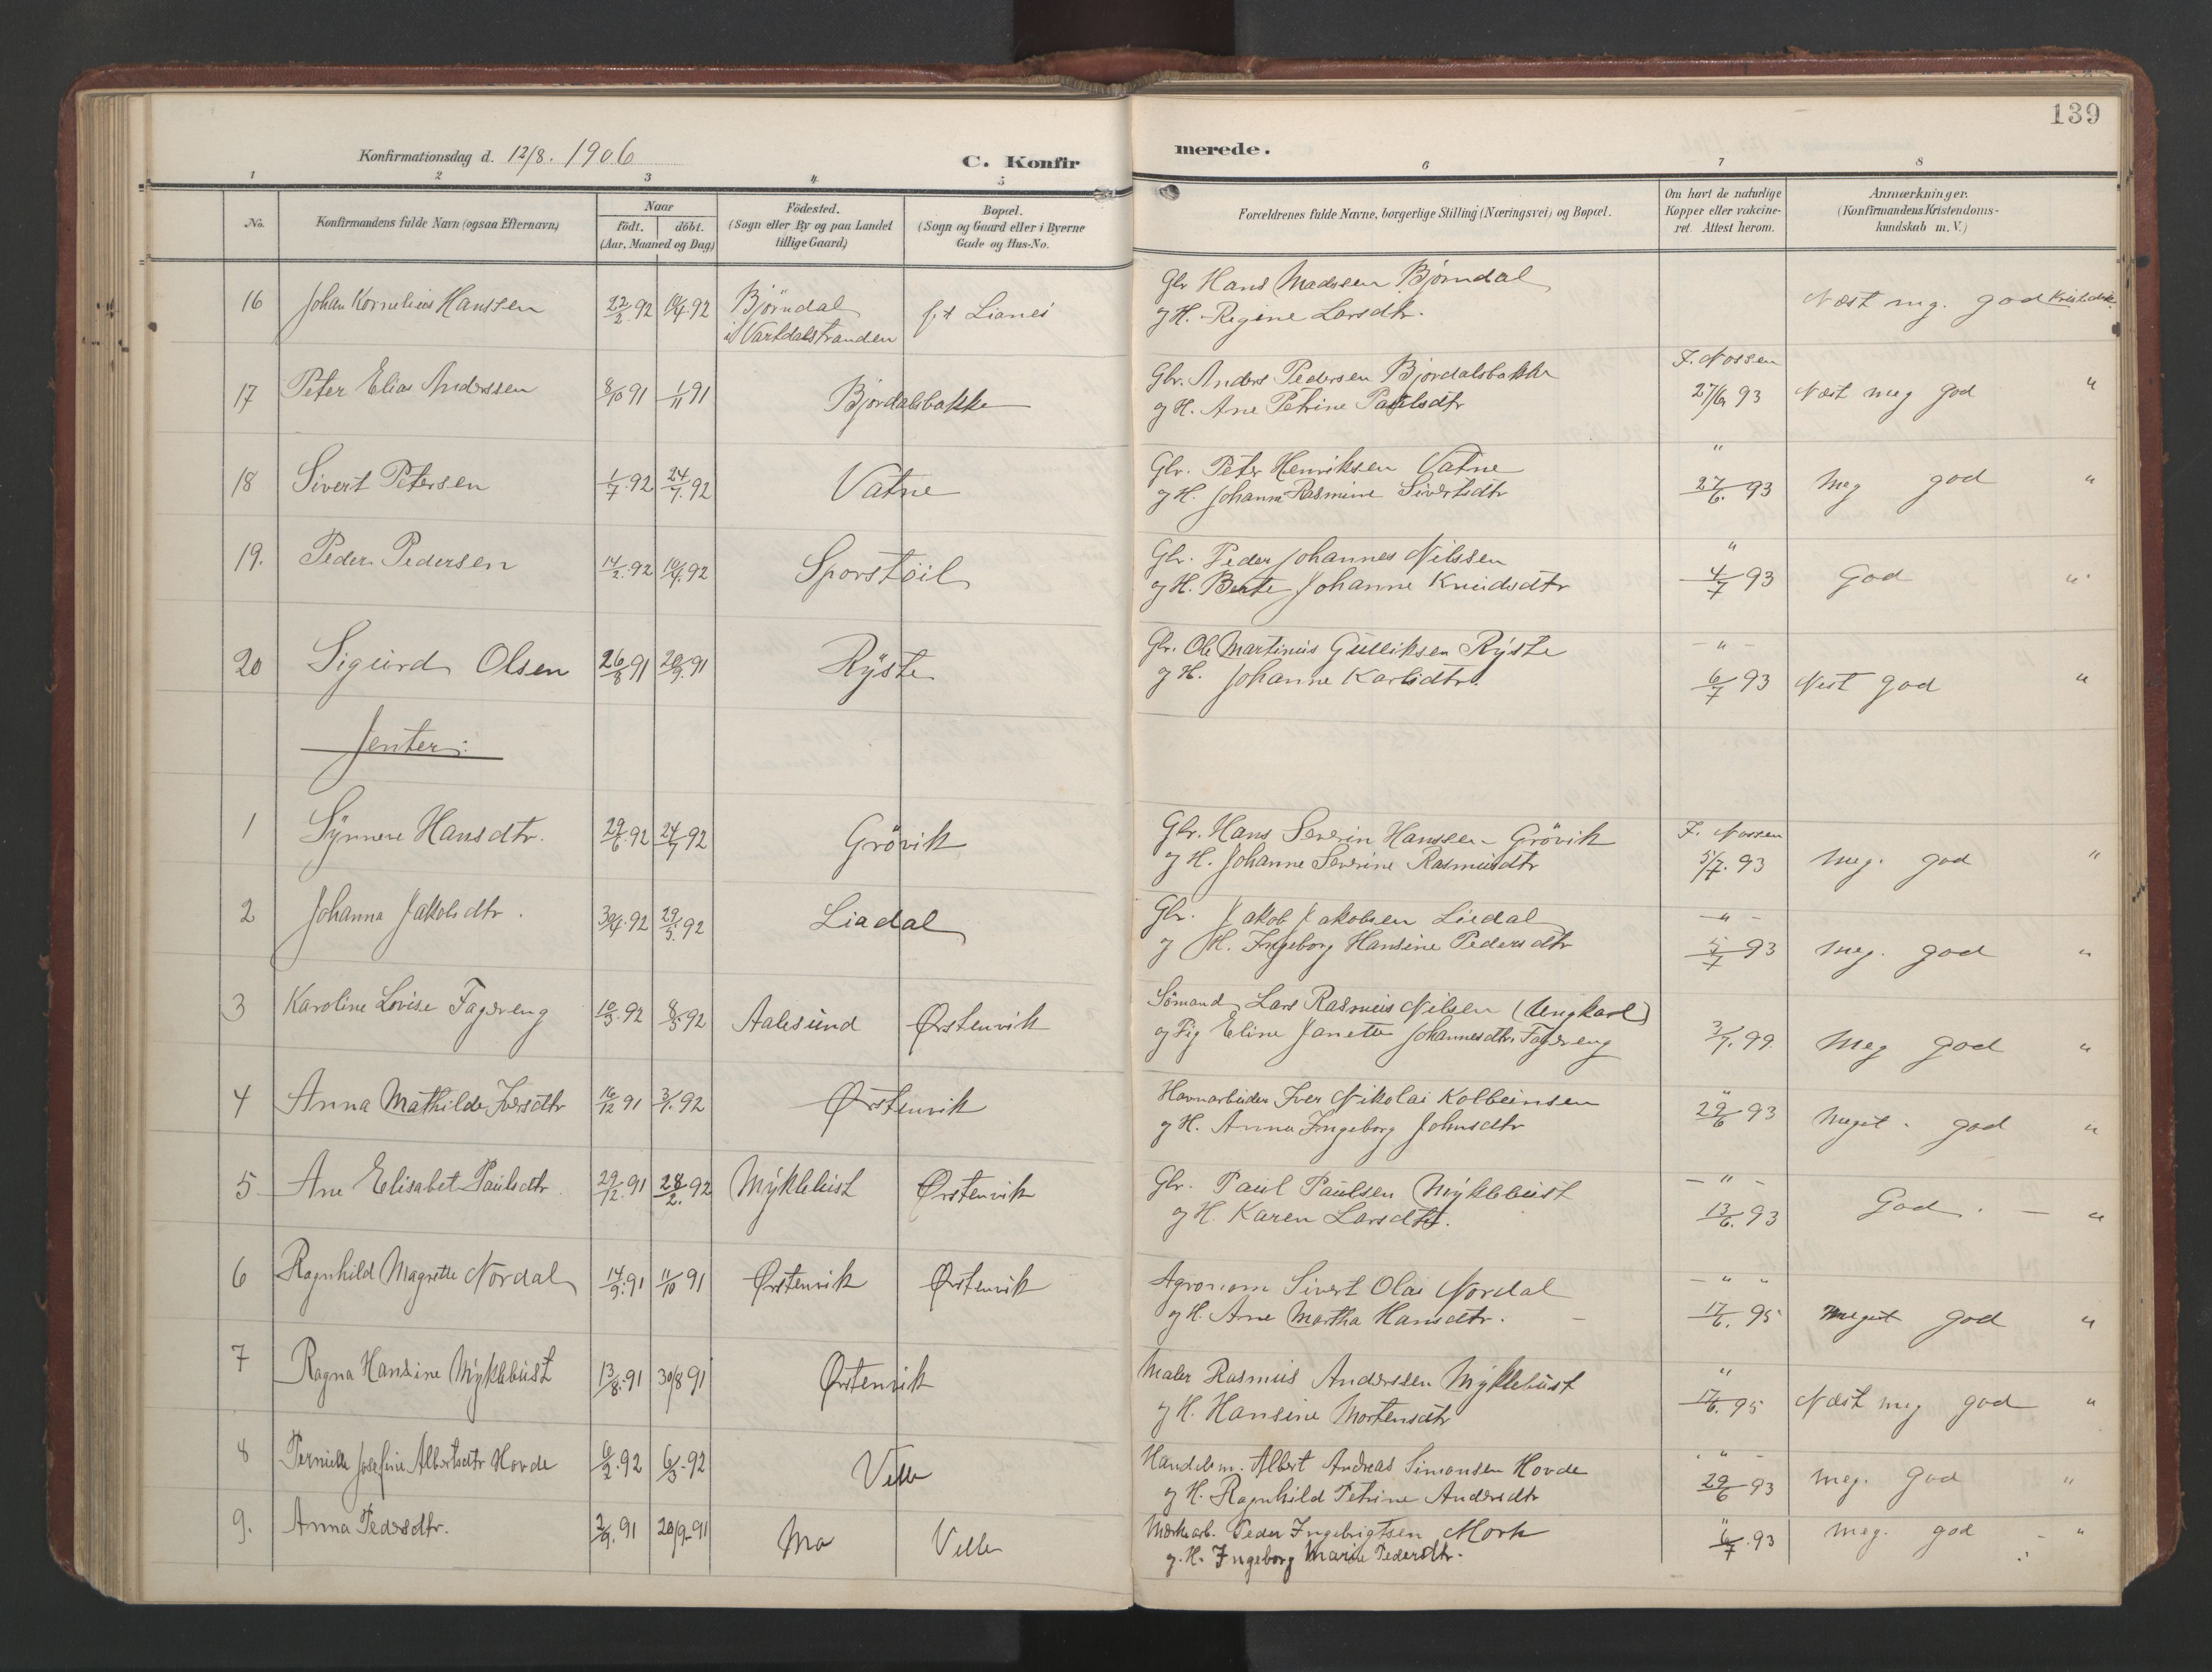 139
Konfirmationsdag d. 12/8. 1906
C. Konfirmerede.
1 2 3 4 5 6 7 8
No.
Konfirmandens fulde Navn (ogsaa Efternavn)
Naar
født. døbt.
(Aar, Maaned og Dag)
Födested.
(Sogn eller By og paa Landet
tillige Gaard)
Bopæl.
(Sogn og Gaard eller i Byerne
Gade og Hus-No.
Forældrenes fulde Navne, borgerlige Stilling (Næringsvei) og Bopæl.
Om havt de naturlige
Kopper eller vakcine-
ret. Attest herom.
Anmærkninger.
(Konfirmandens Kristendoms-
kundskab m. V.)
16 Johan Kornelius Hanssen 22/2 92 18/4 92 Björndal
i Vartdalstranden
Gbr Hans Madssen Björndal
og H. Regine Larsdtr.
Næst mg. god
17 Peter Elias Anderssen 8/10 91 1/11 91 Bjordalsbakke
Gbr. Anders Pedersen Bjordalsbakke
og H. Ane Petrine Paulsdtr
F. Nossen
27/6 93 Næst meg god "
18 Sivert Petersen 1/7 92 24/7 92 Vatne
Gbr. Peter Henriksen Vatne
og H. Johanne Rasmine Sivertsdtr
"
27/6 93 Meg god "
19. Peder Pedersen 14/2 92 18/4 92 Sporstöil
Gbr. Peder Johannes Nilssen
og H. Berte Johanne Knudsdtr
"
4/7 93 God "
20 Sigurd Olsen 26/8 91 20/9 91 Ryste
Gbr. Ole Martinus Gulliksen Ryste
og H. Johanne Karlsdtr.
- " -
6/7 93 Nest god "
Jenter:
1 Synnere Hansdtr. 29/6 92 24/7 92 Grövik
Gbr. Hans Severin Hanssen Grövik
og H. Johanne Severine Rasmusdtr
F. Nossen
5/7. 93 Meg. god "
2 Johanna Jakobsdtr. 30/4 92 29/5 92 Liadal
Gbr. Jakob Jakobsen Liedal
og H. Ingeborg Hansine Pedersdtr
- " -
5/7 93 Meg. god "
3 Karoline Lovise Fagereng 10/3 92 8/5 92 Aalesund Ørstenvik
Sömand Lars Rasmus Nilsen (Ungkarl)
og Pig Eline Janette Johannesdtr. Fagereng
3/7. 99 Meg god "
4 Anna Mathilde Iversdtr 16/12 91 3/1. 92 Ørstenvik
Havnarbeider Iver Nikolai Kolbeinsen
og H. Anna Ingeborg Johnsdtr
"
29/6 93 Meget god "
5 Ane Elisabet Paulsdtr 29/12 91 28/2 92 Myklebust Ørstenvik
Gbr. Paul Paulsen Myklebust
og H. Karen Larsdtr.
- " -
13/6. 93 God. - "
6 Ragnhild Magrette Nordal 14/9 91 11/10 91 Ørstenvik Ørstenvik
Agronom Sivert Olai Nordal
og H. Ane Martha Hansdtr.
- " "
17/6. 95 Meget god "
7 Ragna Hansine Myklebust 13/8. 91 30/8 91 Ørstenvik
Maler Rasmus Anderssen Myklebust
og H. Hansine Mortensdtr
"
17/6. 95 Næst meg god "
8 Pernille Josefine Albertsdtr Hovde 6/2 92 6/3 92 Velle
Handelsm. Albert Andreas Simonsen Hovde
og H. Ragnhild Petrine Andersdtr
" -
29/6 93 Meg. God "
9. Anna Pedersdtr. 2/9. 91 20/9 91 Mo Velle
Peder Ingebrigtsen Mork
og H. Ingeborg Marie Pedersdtr.
"
6/7. 93 Meg. god - "